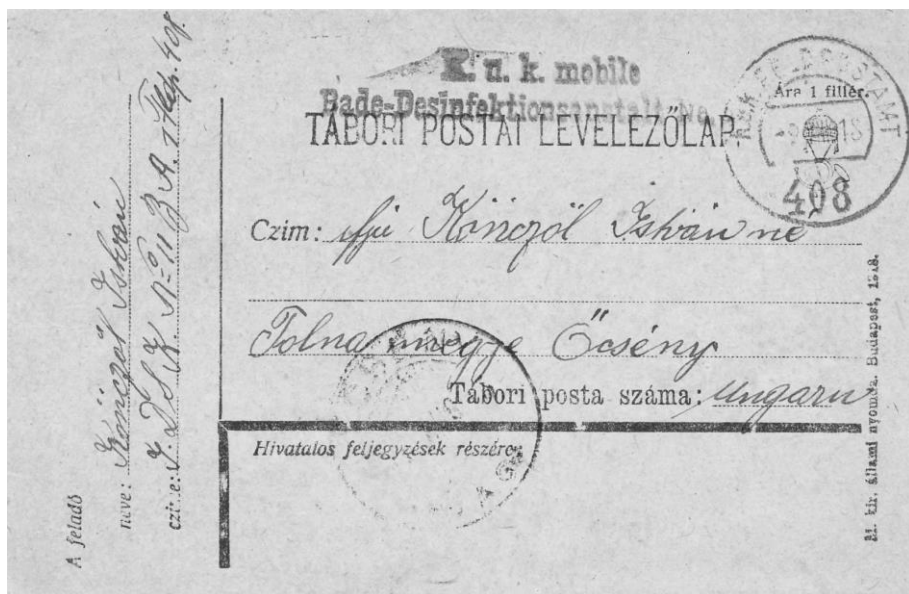 K. u. k. mobile
Bade-Desinfektionsanstalt No
TÁBORI POSTAI LEVELEZŐLAP.
Ára 1 fillér.
K.u.K. FELDPOSTAMT
18
408
Czim: ifju Künczöl Istvánné
Tolna megye Őcsény
Tábori posta száma: Ungarn
Hivatalos feljegyzések részére:
A feladó
neve: Künczöl István
czime:
408.
M. kir. állami nyomda. Budapest, 1918.